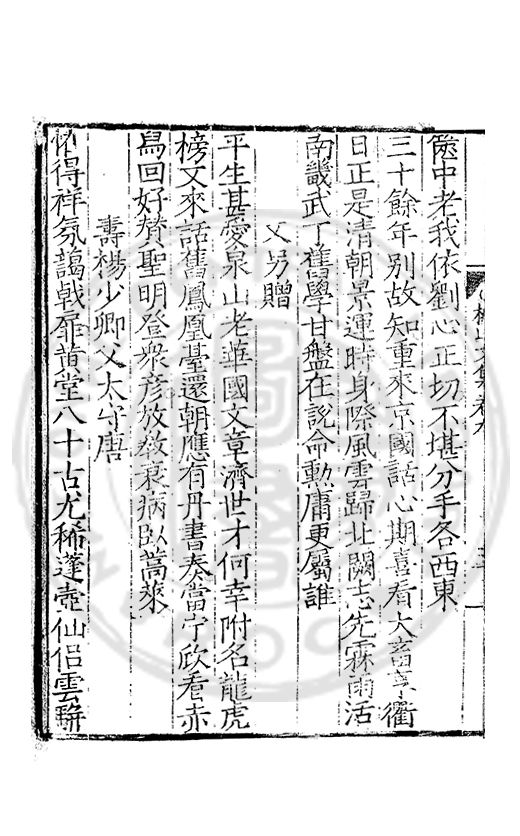 篋中老我依劉心正切不堪分手各西東
三十餘年別故知重來京國話心期喜看大畜亨衢
日正是清朝景運時身際風雲歸北闕志先霖雨活
南畿武丁舊學甘盤在說命勲庸更屬誰
又另贈
平生甚愛泉山老華國文章濟世才何幸附名龍虎
榜又來話舊鳳凰臺還朝應有丹書奏當宁欣看赤
舄回好賛聖明登衆彦放教衰病臥蒿萊
壽楊少卿父太守唐
怀得祥氛藹戟扉黄堂八十古尤稀蓬壺仙侣雲軿